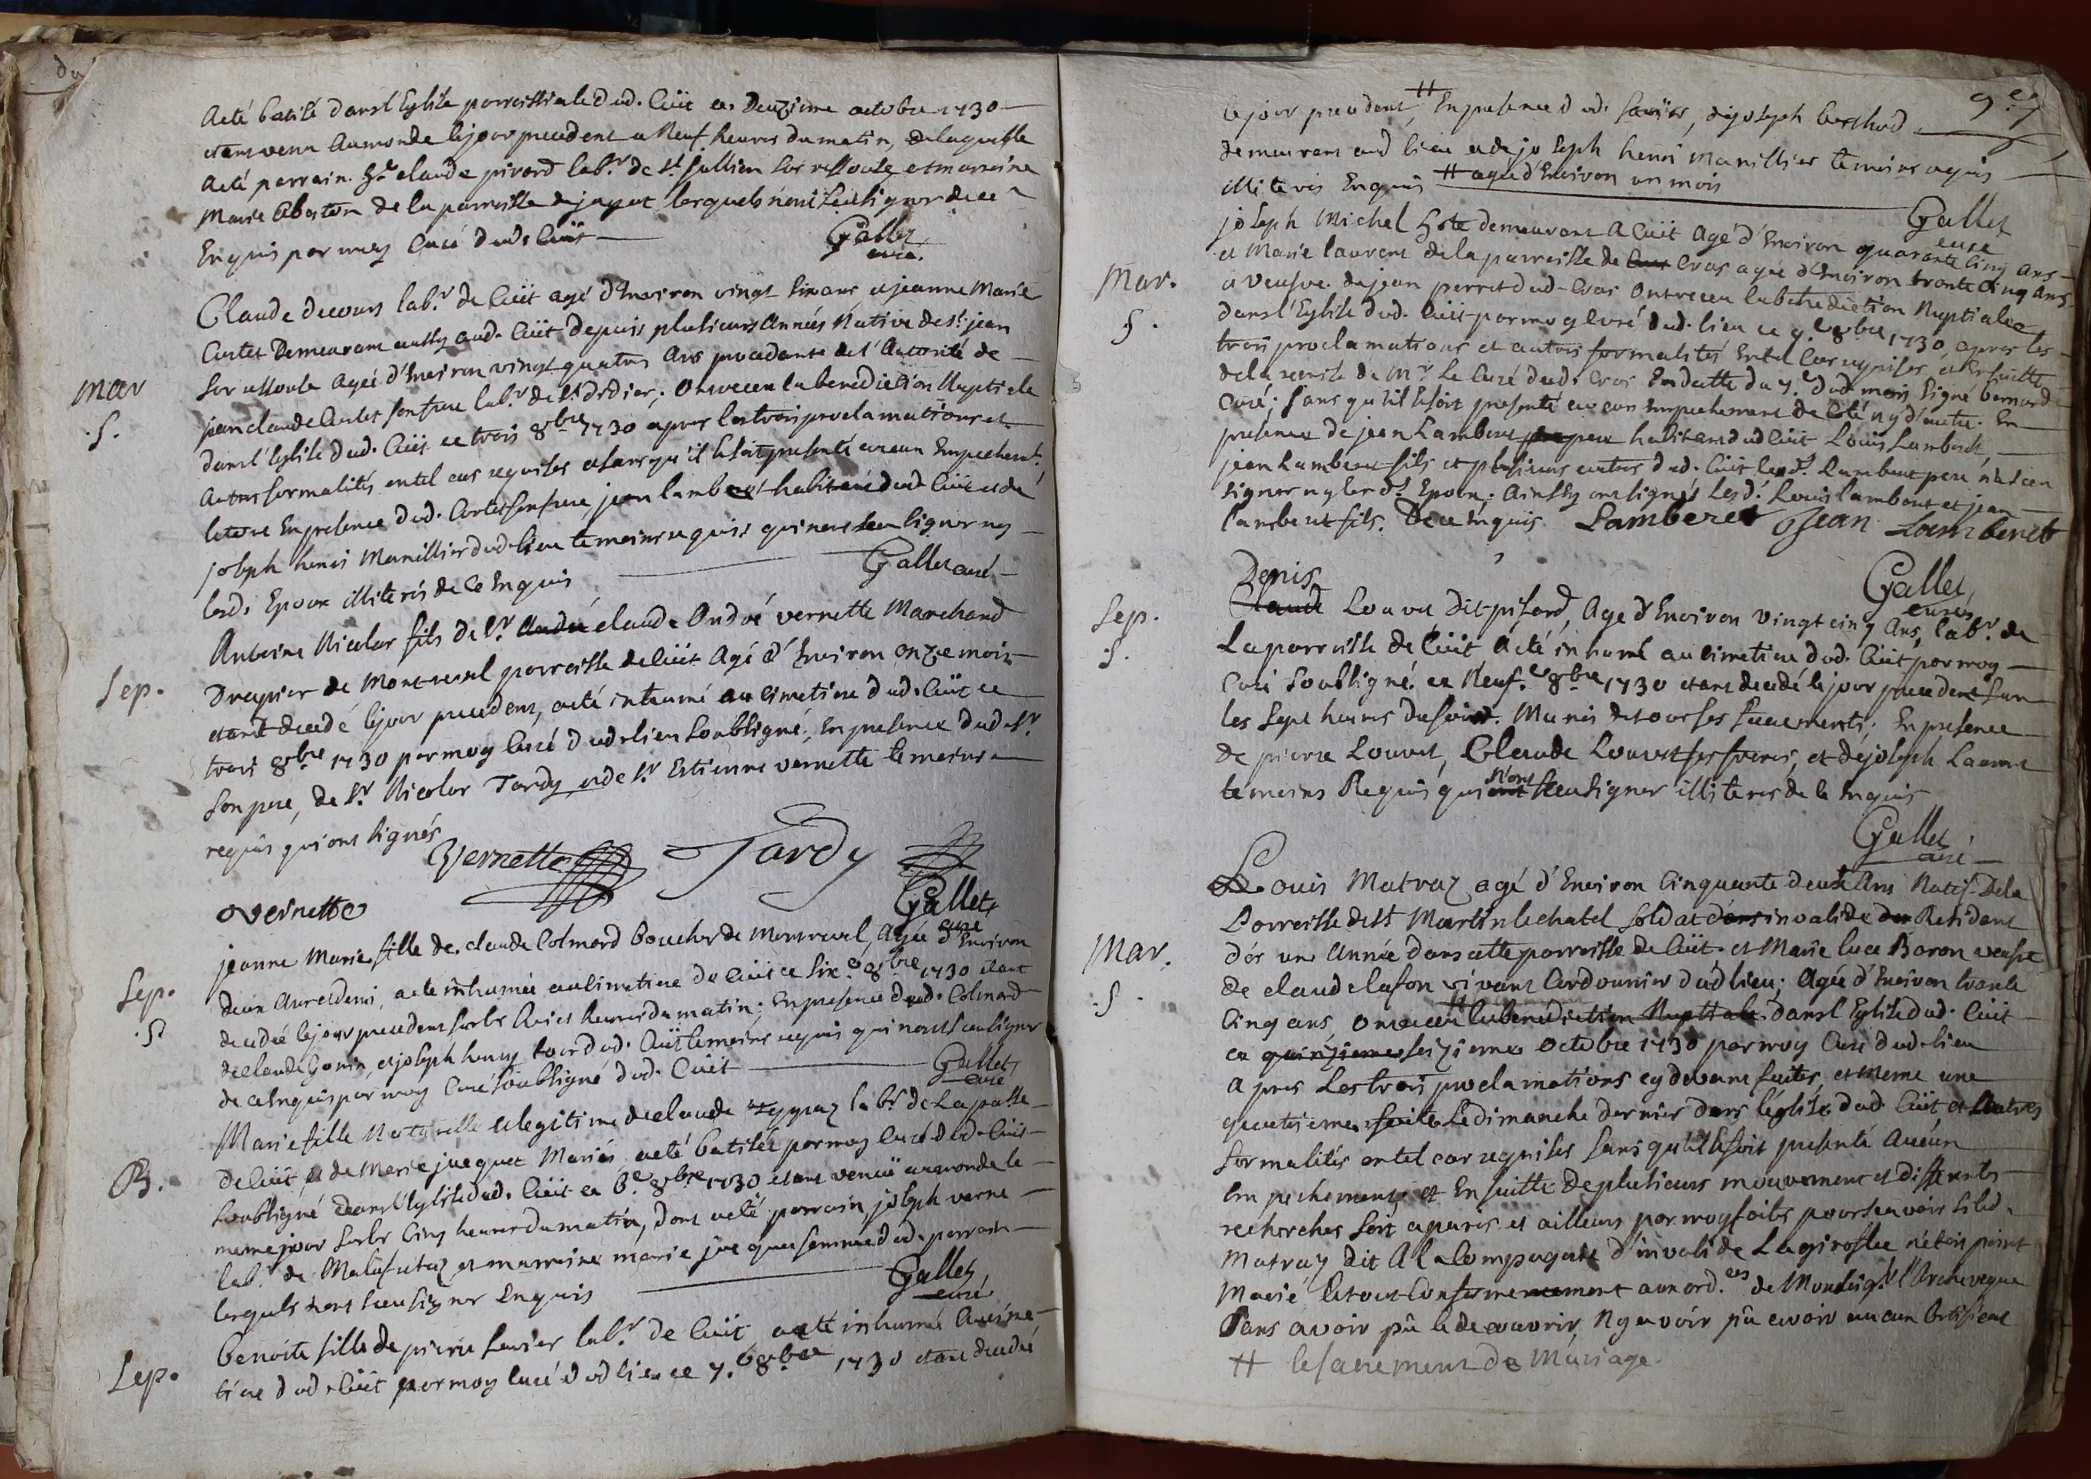 a eté batisé dans l'Eglise parroissiale dud. Cüit ce Deuzieme octobre 1730
etant venu au monde le jour precedent a Neuf heures du matin, de laquelle
a eté parrain Sr. claude pirard labr. de st. Jullien sur ressouse et marraine
Marie Chaston de la parroisse de jayat lesquels n'ont sceu signer de ce
Enquis par moy Curé dud. Cüit
Gallet
curé.
Claude decours labr. de Cüit agé d'Environ vingt six ans et jeanne Marie
Cartet Demeurant aussy aud. Cüit depuis plusieurs Années Native de st. jean
sur ressouse Ageé d'Environ vingt quatre Ans procedante de l'Autorité de
Mar
jean claude Cartet son frere labr. de st. Didier; ont receu la benediction Nuptiale
.S.
dans l'Eglise dud. Cüit ce trois 8bre 1730 apres les trois proclamations et
Autres formalités en tel cas requises et sans qu'il se soit presenté aucun Empechemt.
le tout En presence dud. Cartet son frere, jean lambert habitant dud Cüit et de
joseph henri Manillier dud lieu temoins requis qui n'ont sceu signer ny
lesd. Epoux illiterés de ce Enquis
Gallet curé
Antoine Nicolas fils de Sr. André claude André vernette Marchand
Drapier de Montrevel parroisse de Cüit Agé d'Environ onze mois
Sep.
etant decedé le jour precedent, a eté inhumé au cimetiere dud. Cüit ce
trois 8bre 1730 par moy Curé dud. lieu soubsigné; En presence dud. Sr.
son pere, de Sr. Nicolas Tardy, et de Sr. Estienne vernette temoins
requis qui ont signés
Vernette Tardy
vernette
Gallet
curé
jeanne Marie fille de claude Colmard Boucher de Montrevel, Ageé d'Environ
Sep.
deux Ans et demi, a eté inhumée au cimetiere de Cüit ce six.e 8bre 1730 etant
.S.
decedée le jour precedent sur les huict heures du matin; En presence dud. Colmard
de claude Gonin, et joseph henry tous dud. Cüit temoins requis qui n'ont sceu signer
de ce Enquis par moy Curé soubsigné dud. Cüit
Gallet
curé
Marie fille Naturelle et legitime de claude labr. de La
B.
de Cüit et de Marie jacquet Mariés a eté batisée par moy Curé dud. Cüit
soubsigné dans l'Eglise dud. Cüit ce 6.e 8bre 1730 etant venüe au monde le
meme jour sur les Cinq heures du matin, dont a eté parrain joseph verne
labr. de Malafretaz et marraine marie jacquet femme dud. parrain
lesquels n'ont sceu signer Enquis
Gallet
curé
Sep.
benoite fille de pierre savier labr. de Cüit a eté inhumé Au cime
tiere dud. Cüit par moy curé dud lieu ce 7.e 8bre 1730 etant decedé
9.e 7
le jour precedent # En presence dud. savier, de joseph berthod
demeurant aud lieu et de joseph henri Manillier temoins requis
illiterés Enquis # ageé d'Environ un mois
Gallet
curé
joseph Michel hote demeurant A Cüit Agé d'Environ quarante Cinq ans
Mar.
et Marie laurent de la parroisse de Cras ageé d'Environ trente Cinq Ans
S.
veufve de jean perret dud. Cras Ont receu la benediction Nuptiale
dans l'Eglise dud. Cüit par moy Curé dud. lieu ce 9.e 8bre 1730 apres les
trois proclamations et autres formalités En tel Cas requises, et Ensuitte
de la remise de Mr. le Curé dud. Cras En datte du 7.e dud mois signé bernard
Curé; sans qu'il se soit presenté aucun Empechement de coté ny d'autre. En
presence de jean Lambert pere habitant dud Cüit Louis Lambert,
jean Lambert fils et plusieurs autres dud. Cüit led. Lambert pere n'a sceu
signer ny lesd. Epoux; Ainssy ont signés lesd. Louis lambert et jean
lambert fils. De ce Enquis Lamberet Jean Lamberet
Gallet
curés
Denis
Sep.
Claude Louvet Dit pisard, Age d'Environ Vingt cinq Ans, labr. de
.S.
La parroisse de Cüit A eté inhumé au cimetiere dud. Cüit par moy
Curé soubsigné. ce Neuf.e 8bre 1730 etant decedé le jour precedent sur
les Sept heures du soir. Muni de tous ses sacrements; En presence
de pierre Louvet, Claude Louvet ses freres, et de joseph Laurent
temoins Requis qui n'ont sceu signer illiterés de ce Enquis
Gallet
curé
Louis Matray agé d'Environ Cinquante deux Ans Natif Dela
Parroisse de st Martin le chatel soldat invalide Residant
Mar.
d'és une Année dans cette parroisse de Cüit et Marie luce Baron veufve
.S.
de claude lafon vivant Cordonnier dud lieu; Ageé d'Environ trente
Cinq ans, ont receu # la benediction Nuptiale dans l'Eglise dud. Cüit
ce quinzieme seizieme Octobre 1730 par moy Curé dud. lieu
Apres Les trois proclamations cy devant faites, et meme une
quatrieme faite Le dimanche dernier dans l'église dud Cüit et Autres
formalités en tel cas requises sans qu'il se soit presenté Aucun
Empechement; et Ensuitte de plusieurs mouvement et differents
recherches soit a paris et ailleurs par moy faites pour scavoir si led.
Matray dit A la Compagnie d'invalide Lagiroflee n'étoit point
Marié le tout Conformement aux ord.ces de Monseigr. l'Archeveque
Sans avoir pû le decouvrir, Ny avoir pû avoir aucun Certificat
# le sacrement de Mariage.